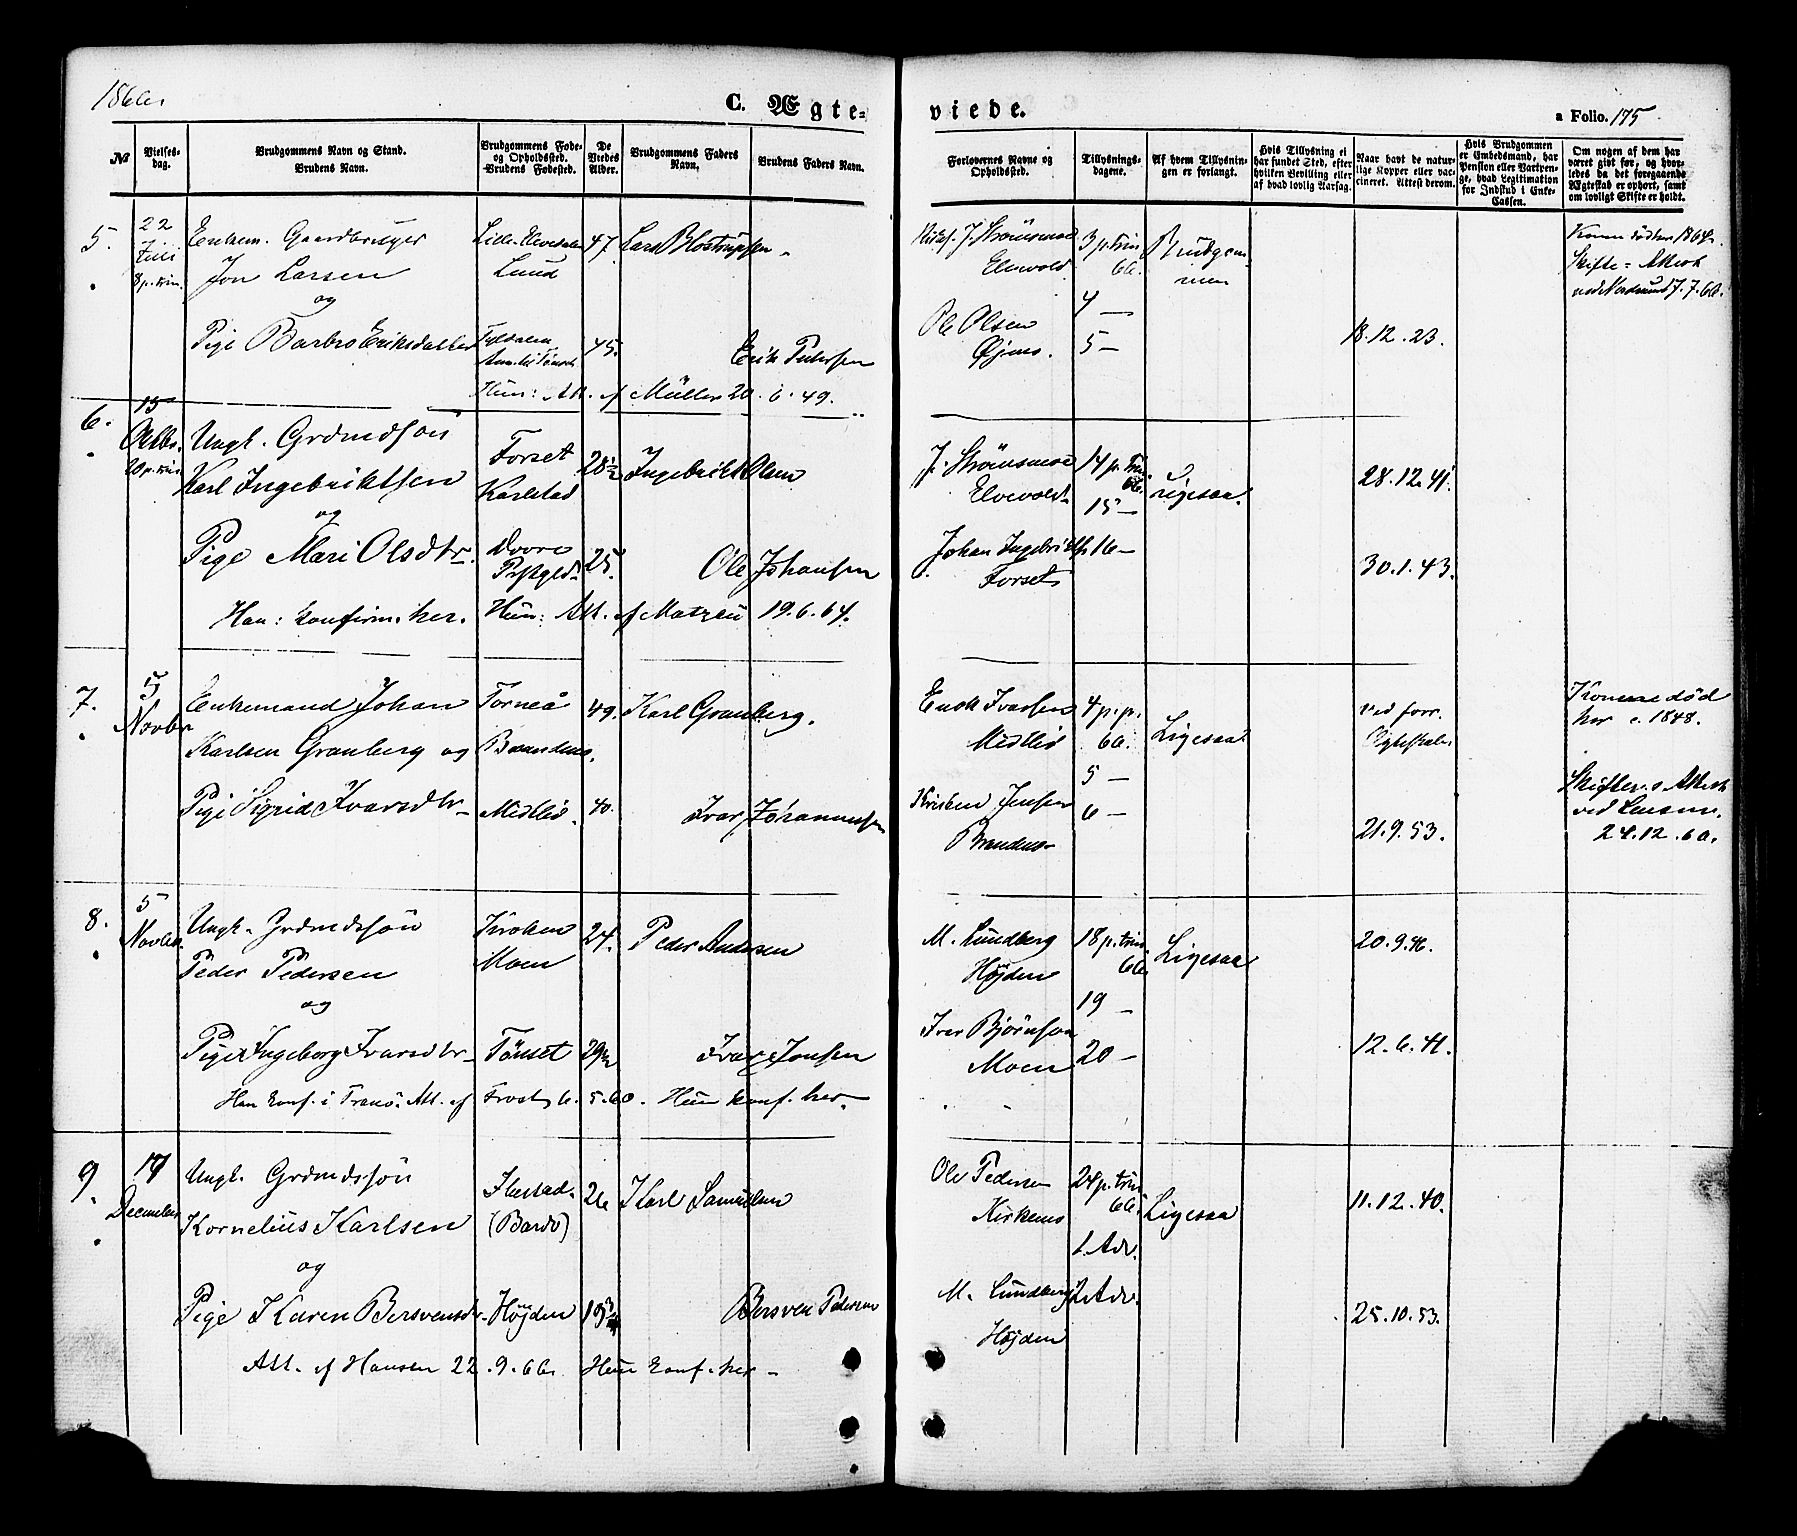 1866.
C. Ægte-
viede.
a Folio. 175
№
Vielses-
dag.
Brudgommens Navn og Stand.
Brudens Navn.
Brudgommens Føde-
og Opholdssted.
Brudens Fødested.
De
Viedes
Alder.
Brudgommens Faders
Navn.
Brudens Faders Navn.
Forlovernes Navne og
Opholdssted.
Tillysnings-
dagene.
Af hvem Tillysnin-
gen er forlangt.
Hvis Tillysning ei
har fundet Sted, efter
hvilken Bevilling eller
af hvad lovlig Aarsag.
Naar havt de natur-
lige Kopper eller vac-
cineret. Attest derom.
Hvis Brudgommen
er Embedsmand, har
Pension eller Vartpen-
ge, hvad Legitimation
for Indskud i Enke-
Cassen.
Om nogen af dem har
været gift før, og hvor-
ledes da det foregaaende
Ægteskab er ophørt, samt
om lovligt Skifte er holdt.
5.
22
Juli
8 p. trin.
Enkem. Gaardbruger
Jon Larsen
og
Pige Barbro Eriksdatter
Lille-Elvedalen
Lund
47.
Lars
3 p. Trin
66.
4 —
5 —
J. Strømsmoe
Elvevold
Ole Olsen
Brudgom-
men
Konen død
Skifte-Attest
7.7.66.
Tyldalen
45.
Erik Pedersen
18.12.23.
Hun: Att. af Müller 20.6.49.
6.
15
Octbr.
20 p. trin.
Ungk. Grdmdsøn
Karl Ingebriktsen
og
Pige Mari Olsdtr.
Forset
Karlstad
Dovre
Prstgld.
28½
25.
Ingebrikt Olsen
Ole Johansen
J. Strømsmoe
Elvevold
Johan Ingebrikts.
Forset
14 p. Trin
66.
15 —
16 —
Ligesaa.
28.12.41.
30.1.43.
Han: konfirm. her. Hun: Att. af Matzau 19.6.64.
7.
5
Novbr
Enkemand Johan
Karlsen Granberg og
Pige Sigrid Ivarsdtr.
Torneå
Brandmo.
Medlid.
49.
40.
Karl Granberg.
Ivar Johannesen
Enok Ivarsen
Medlid
Kristen Jensen
Brandmo
4 p. p.
66.
5 —
6 —
Ligesaa
ved forr.
Ægteskab.
21.9.53.
Konen død
her c. 1848.
Skifte Attest
ved
24.12.60.
8.
5
Novbr.
Ungk. Grdmdssøn
Peder Pedersen
og
Pige Ingeborg Ivarsdtr.
Kroken
Moen
Tønset
24.
29½
Peder Andersen
Ivar Jonsen
M. Lundberg
Højden
Iver Bjørnson
Moen
18 p. trin.
66.
19 —
20 —
Ligesaa
20.9.46.
12.6.41.
Han konf. i Tranø. Att. af Frost 6.5.60. Hun konf. her.
9.
17
December
Ungk. Grdmdssøn
Kornelius Karlsen
og
Pige Karen Bersvensdr.
(Bardo)
Højden
26
19¾
Karl Samuelsen
Bersven Pedersen
Ole Pedersen
Kirkemo
M. Lundberg
Højden
24 p. trin
66.
1. Adv.
2. Adv.
Ligesaa
11.12.40.
25.10.53.
Att. af Hansen 22.9.66. Hun konf. her.